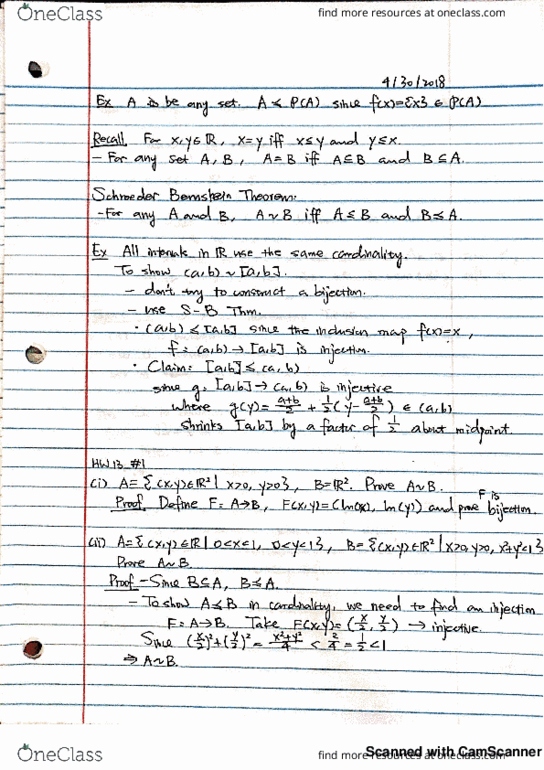 OneClass
find more resources at oneclass.com
4/30/2018
Ex A is be any set. A ≤ P(A) since f(x)={x} ∈ P(A)
Recall For x,y∈ℝ, x=y iff x≤y and y≤x.
- For any set A, B, A=B iff A⊆B and B⊆A.
Schroeder Bernstein Theorem:
- For any A and B, A~B iff A≤B and B≤A.
Ex All intervals in ℝ use the same cardinality.
To show (a,b) ~ [a,b].
- don't try to construct a bijection.
- use S-B Thm.
· (a,b) ≤ [a,b] since the inclusion map f(x)=x,
f: (a,b) → [a,b] is injection.
· Claim: [a,b] ≤ (a,b)
since g: [a,b] → (a,b) is injective
where g(y) = (a+b)/2 + 1/2(y - (a+b)/2) ∈ (a,b)
shrinks [a,b] by a factor of 1/2 about midpoint.
HW 13 #1
(i) A = {(x,y)∈ℝ² | x>0, y>0}, B=ℝ². Prove A~B.
Proof Define F: A→B, F(x,y) = (ln(x), ln(y)) and prove F is bijection.
(ii) A = {(x,y)∈ℝ | 0<x<1, 0<y<1}, B = {(x,y)∈ℝ² | x>0, y>0, x²+y²<1}
Prove A~B.
Proof - Since B⊆A, B≤A.
- To show A≤B in cardinality, we need to find an injection
F: A→B. Take F(x,y) = (x/2, y/2) → injective.
Since (x/2)²+(y/2)² = (x²+y²)/4 < 2/4 = 1/2 < 1
⇒ A~B.
Scanned with CamScanner
OneClass
find more resources at oneclass.com